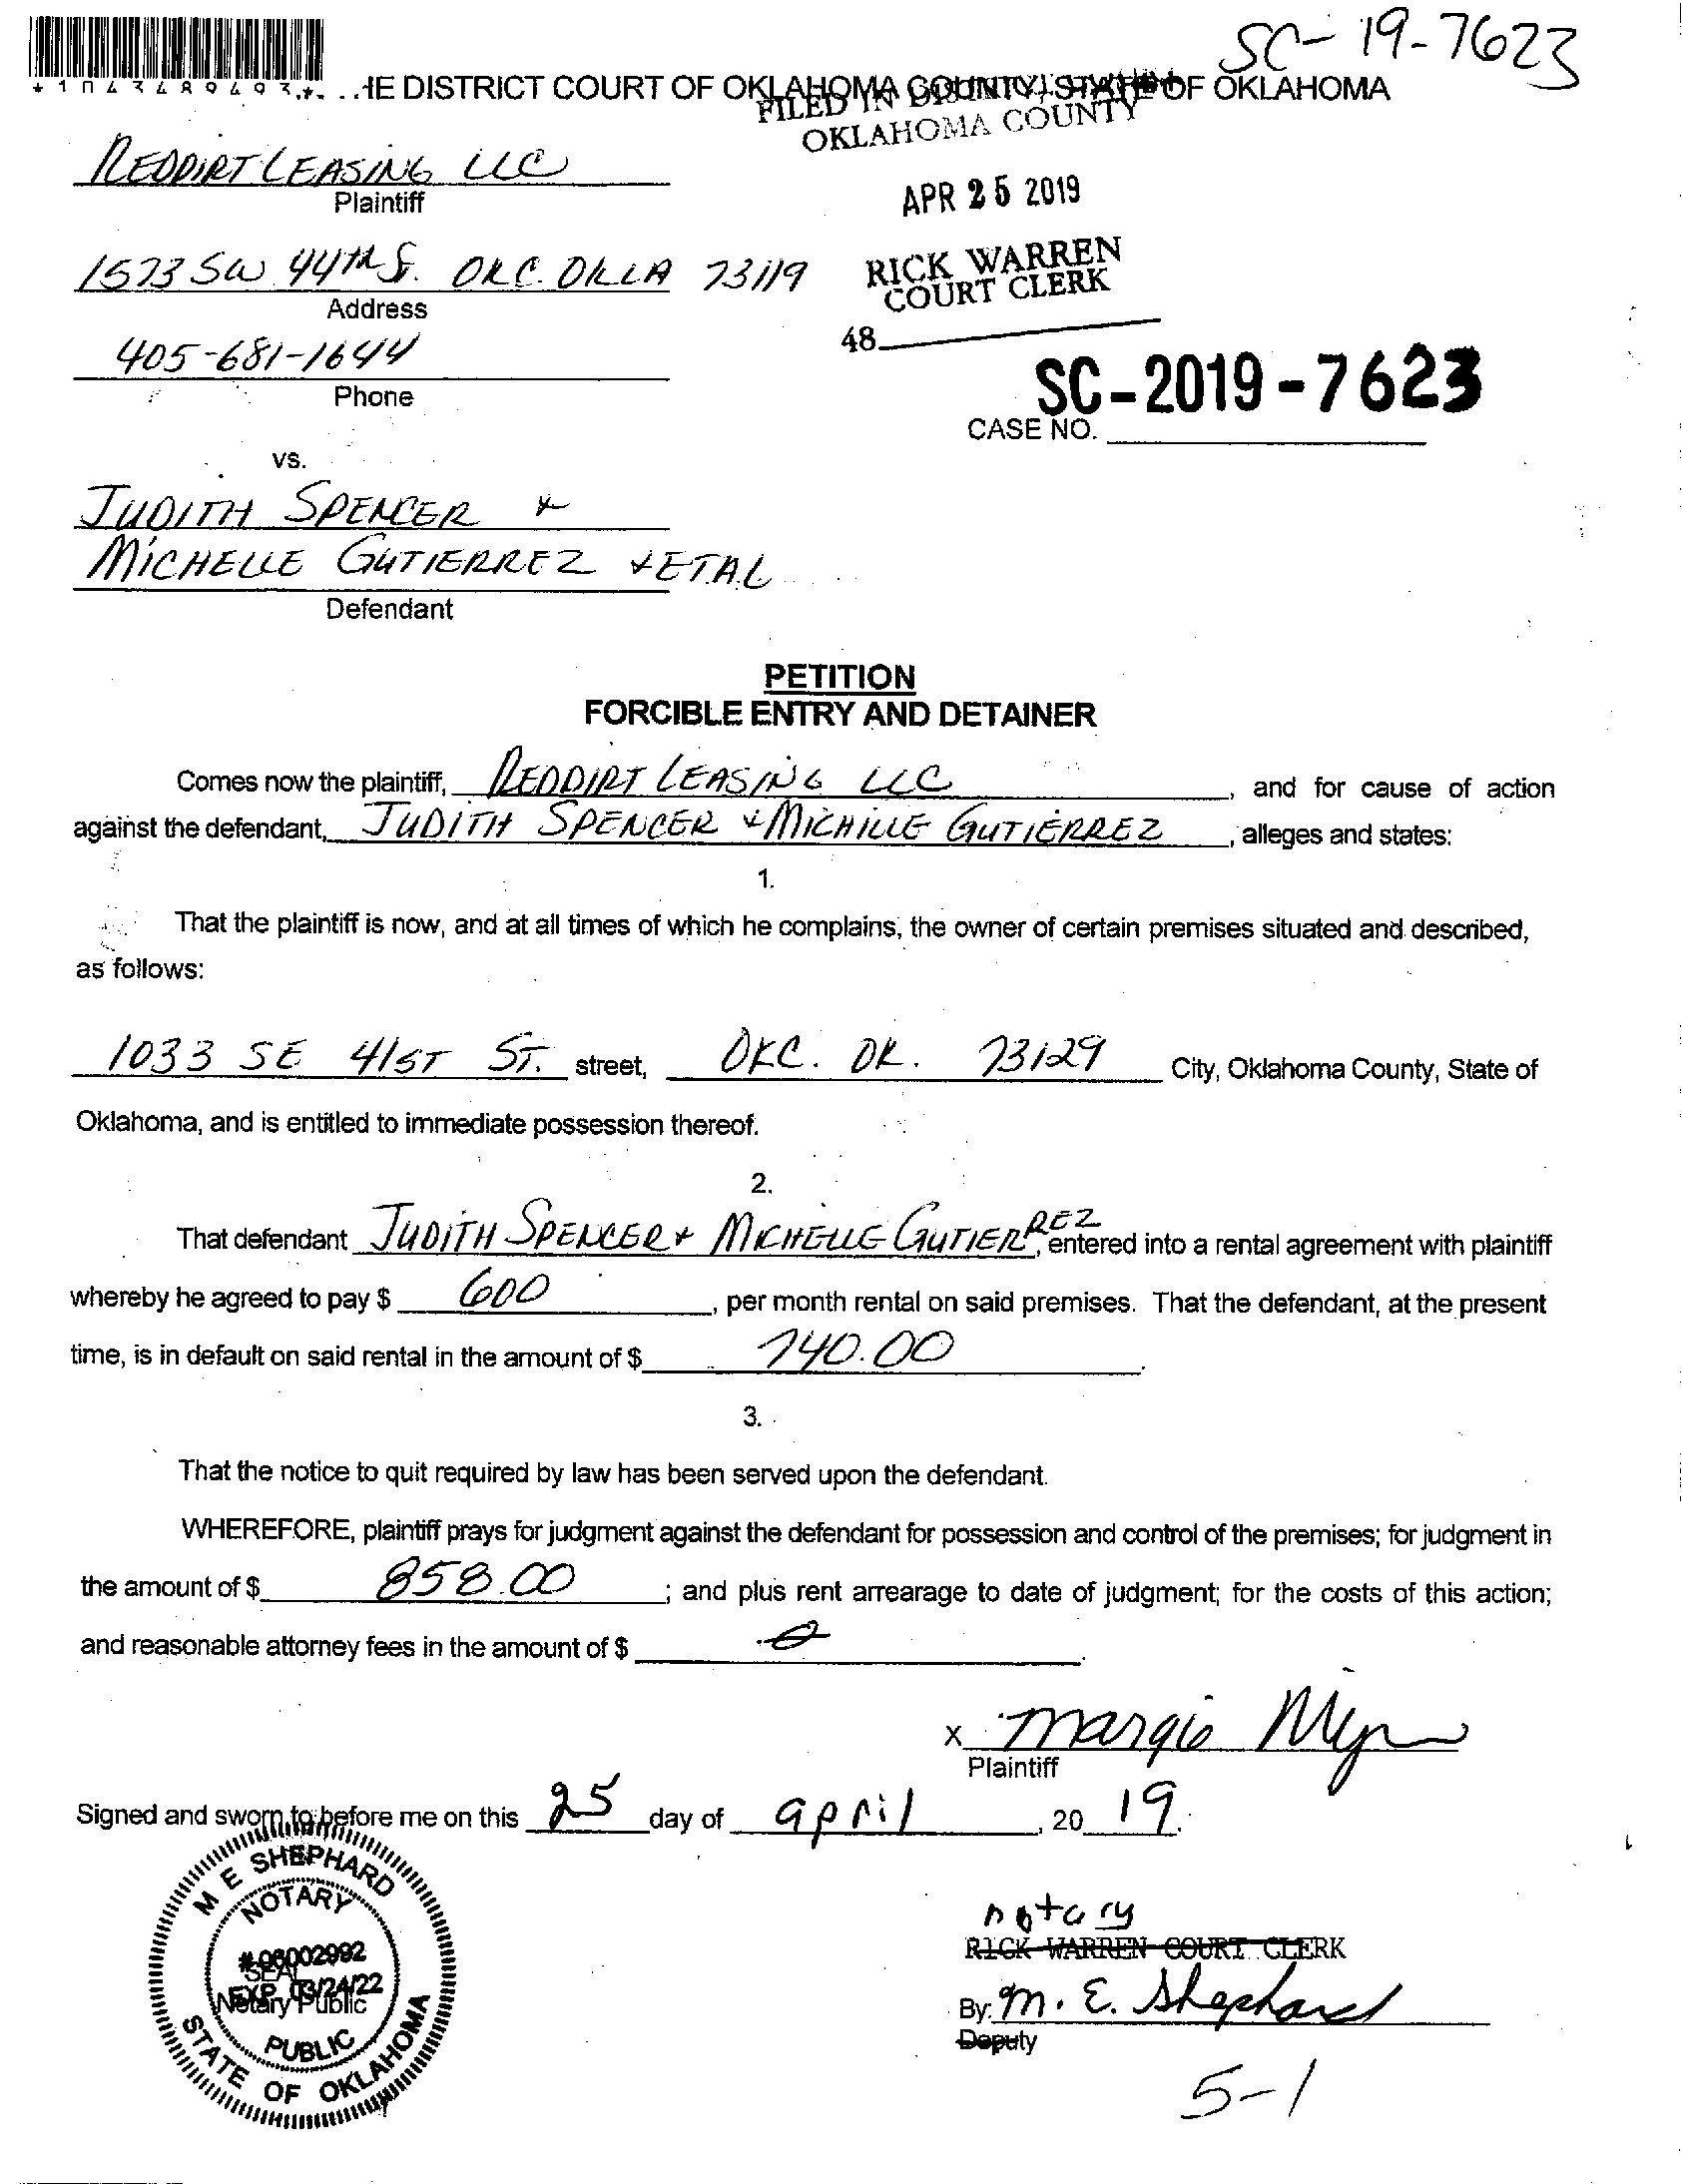 SC-19-7623
*1043489493*
HE DISTRICT COURT OF OKLAHOMA COUNTY, STATE OF OKLAHOMA
FILED IN DISTRICT COURT
OKLAHOMA COUNTY
REDDIRT LEASING LLC
Plaintiff
APR 25 2019
1573 SW 44TH St. OKC. OKLA 73119
Address
RICK WARREN
COURT CLERK
405-681-1644
Phone
48
SC-2019-7623
CASE NO.
vs.
JUDITH SPENCER &
MICHELLE GUTIERREZ & ETAL
Defendant
PETITION
FORCIBLE ENTRY AND DETAINER
Comes now the plaintiff, REDDIRT LEASING LLC, and for cause of action
against the defendant, JUDITH SPENCER & MICHILLE GUTIERREZ, alleges and states:
1.
That the plaintiff is now, and at all times of which he complains, the owner of certain premises situated and described,
as follows:
1033 SE 41ST ST. street, OKC. OK. 73129 City, Oklahoma County, State of
Oklahoma, and is entitled to immediate possession thereof.
2.
That defendant JUDITH SPENCER & MICHELLE GUTIERREZ, entered into a rental agreement with plaintiff
whereby he agreed to pay $ 600, per month rental on said premises. That the defendant, at the present
time, is in default on said rental in the amount of $ 740.00.
3.
That the notice to quit required by law has been served upon the defendant.
WHEREFORE, plaintiff prays for judgment against the defendant for possession and control of the premises; for judgment in
the amount of $ 858.00; and plus rent arrearage to date of judgment; for the costs of this action;
and reasonable attorney fees in the amount of $ 0.
x Margie
Plaintiff
Signed and sworn to before me on this 25 day of april, 2019.
M E SHEPHARD
NOTARY
#06002992
SEAL
EXP. 03/24/22
Notary Public
PUBLIC
STATE OF OKLAHOMA
notary
RICK WARREN COURT CLERK
By: M. E. Shephard
Deputy
5-1